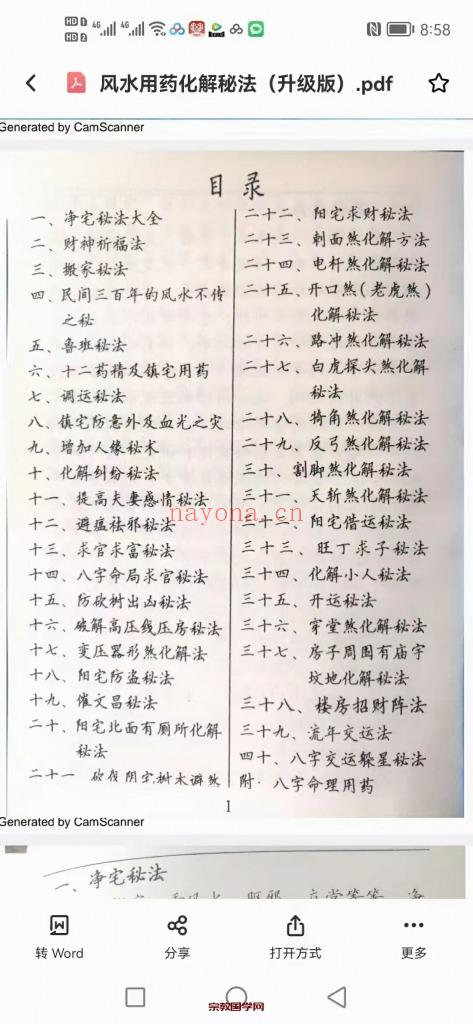 HD 1 4G 4G
HD 2
8:58
风水用药化解秘法（升级版）.pdf
Generated by CamScanner
目录
一、净宅秘法大全
二、财神祈福法
三、搬家秘法
四、民间三百年的风水不传
之秘
五、鲁班秘法
六、十二药精及镇宅用药
七、调运秘法
八、镇宅防意外及血光之灾
九、增加人缘秘术
十、化解纠纷秘法
十一、提高夫妻感情秘法
十二、避瘟祛邪秘法
十三、求官求富秘法
十四、八字命局求官秘法
十五、防砍树出凶秘法
十六、破解高压线压房秘法
十七、变压器形煞化解法
十八、阳宅防盗秘法
十九、催文昌秘法
二十、阳宅北面有厕所化解
秘法
二十一 砍伐阴宅树木避煞
二十二、阳宅求财秘法
二十三、刺面煞化解方法
二十四、电杆煞化解秘法
二十五、开口煞（老虎煞）
化解秘法
二十六、路冲煞化解秘法
二十七、白虎探头煞化解
秘法
二十八、犄角煞化解秘法
二十九、反弓煞化解秘法
三十、割脚煞化解秘法
三十一、天斩煞化解秘法
三十二、阳宅借运秘法
三十三、旺丁求子秘法
三十四、化解小人秘法
三十五、开运秘法
三十六、穿堂煞化解秘法
三十七、房子周围有庙宇
坟地化解秘法
三十八、楼房招财阵法
三十九、流年交运法
四十、八字交运躲星秘法
附·八字命理用药
nayona.cn
1
Generated by CamScanner
一、净宅秘法
转 Word
分享
打开方式
更多
宗教国学网